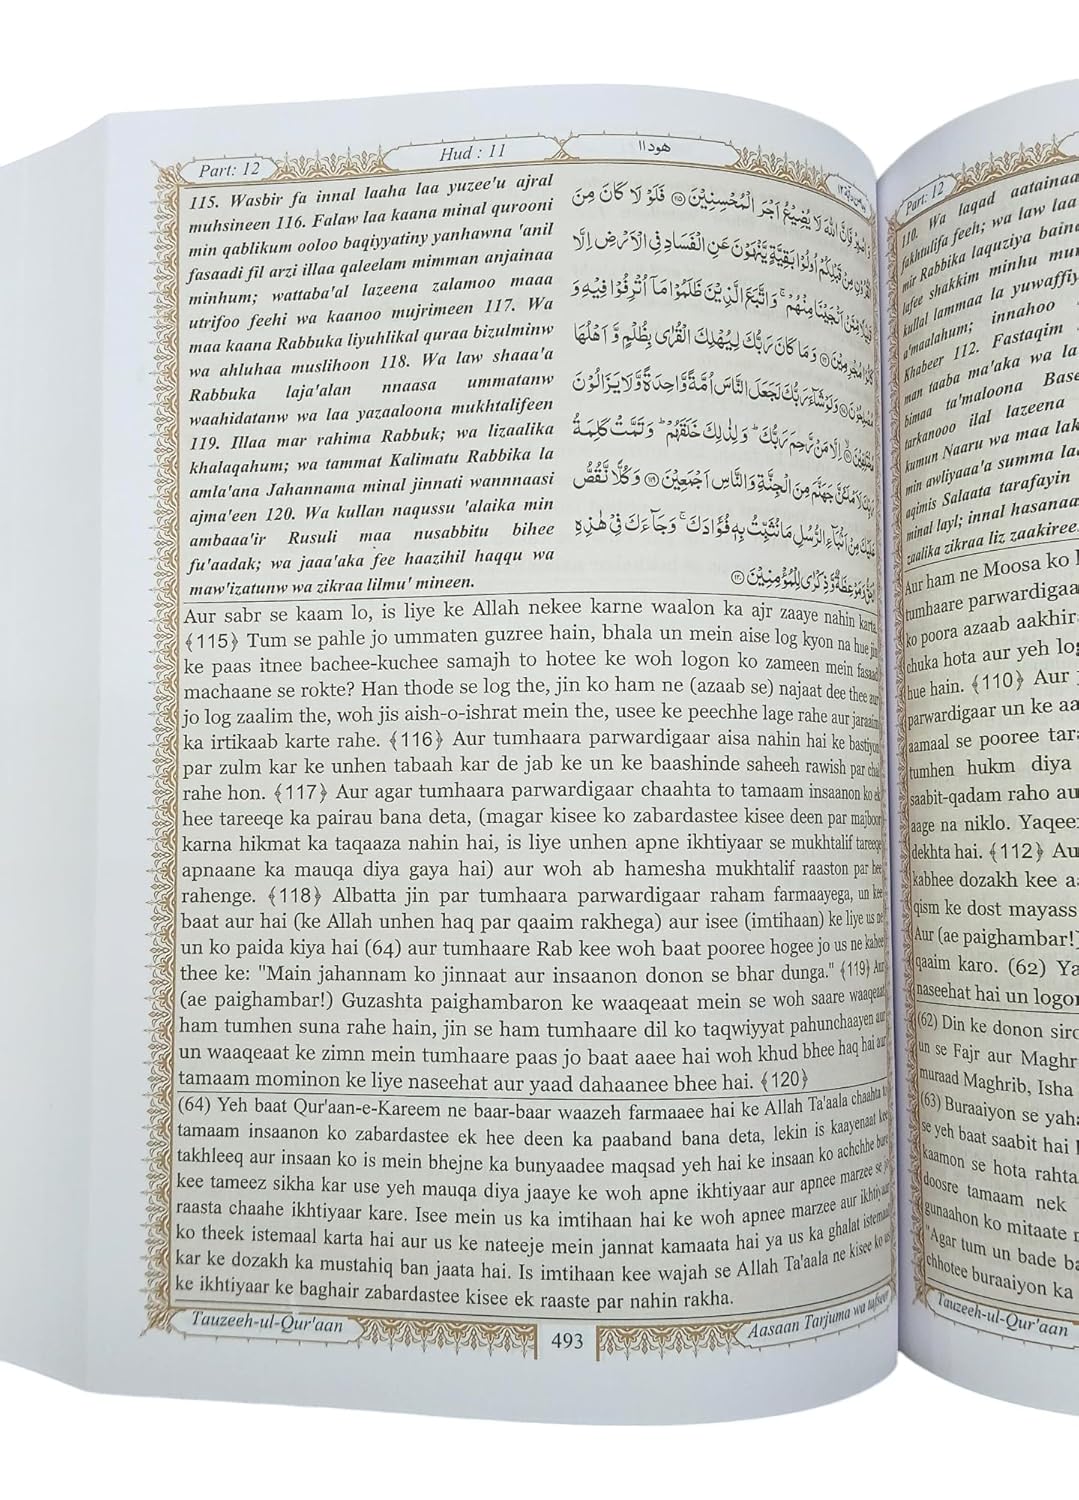 Part: 12
Hud : 11
هود ١١
115. Wasbir fa innal laaha laa yuzee'u ajral
muhsineen 116. Falaw laa kaana minal qurooni
min qablikum ooloo baqiyyatiny yanhawna 'anil
fasaadi fil arzi illaa qaleelam mimman anjainaa
minhum; wattaba'al lazeena zalamoo maaa
utrifoo feehi wa kaanoo mujrimeen 117. Wa
maa kaana Rabbuka liyuhlikal quraa bizulminw
wa ahluhaa muslihoon 118. Wa law shaaa'a
Rabbuka laja'alan nnaasa ummatanw
waahidatanw wa laa yazaaloona mukhtalifeen
119. Illaa mar rahima Rabbuk; wa lizaalika
khalaqahum; wa tammat Kalimatu Rabbika la
amla'ana Jahannama minal jinnati wannnaasi
ajma'een 120. Wa kullan naqussu 'alaika min
ambaaa'ir Rusuli maa nusabbitu bihee
fu'aadak; wa jaaa'aka fee haazihil haqqu wa
maw'izatunw wa zikraa lilmu' mineen.
فَاِنَّ اللّٰهَ لَا يُضِيْعُ اَجْرَ الْمُحْسِنِيْنَ ﴿۱۱۵﴾ فَلَوْ لَا كَانَ مِنَ
مِنْ قَبْلِكُمْ اُولُوْا بَقِيَّةٍ يَّنْهَوْنَ عَنِ الْفَسَادِ فِى الْاَرْضِ اِلَّا
اَنْجَيْنَا مِنْهُمْ ۚ وَاتَّبَعَ الَّذِيْنَ ظَلَمُوْا مَاۤ اُتْرِفُوْا فِيْهِ وَ
مُجْرِمِيْنَ ﴿۱۱۶﴾ وَمَا كَانَ رَبُّكَ لِيُهْلِكَ الْقُرٰى بِظُلْمٍ وَّاَهْلُهَا
مُصْلِحُوْنَ ﴿۱۱۷﴾ وَلَوْ شَآءَ رَبُّكَ لَجَعَلَ النَّاسَ اُمَّةً وَّاحِدَةً وَّلَا يَزَالُوْنَ
مُخْتَلِفِيْنَ ﴿۱۱۸﴾ اِلَّا مَنْ رَّحِمَ رَبُّكَ ؕ وَلِذٰلِكَ خَلَقَهُمْ ؕ وَتَمَّتْ كَلِمَةُ
لَاَمْلَـَٔنَّ جَهَنَّمَ مِنَ الْجِنَّةِ وَالنَّاسِ اَجْمَعِيْنَ ﴿۱۱۹﴾ وَكُلًّا نَّقُصُّ
عَلَيْكَ مِنْ اَنْۢبَآءِ الرُّسُلِ مَا نُثَبِّتُ بِهٖ فُؤَادَكَ ۚ وَجَآءَكَ فِىْ هٰذِهِ
وَمَوْعِظَةٌ وَّذِكْرٰى لِلْمُؤْمِنِيْنَ ﴿۱۲۰﴾
Aur sabr se kaam lo, is liye ke Allah nekee karne waalon ka ajr zaaye nahin karta.
﴾115﴿ Tum se pahle jo ummaten guzree hain, bhala un mein aise log kyon na hue jin
ke paas itnee bachee-kuchee samajh to hotee ke woh logon ko zameen mein fasaad
machaane se rokte? Han thode se log the, jin ko ham ne (azaab se) najaat dee thee aur
jo log zaalim the, woh jis aish-o-ishrat mein the, usee ke peechhe lage rahe aur jaraaim
ka irtikaab karte rahe. ﴾116﴿ Aur tumhaara parwardigaar aisa nahin hai ke bastiyon
par zulm kar ke unhen tabaah kar de jab ke un ke baashinde saheeh rawish par chal
rahe hon. ﴾117﴿ Aur agar tumhaara parwardigaar chaahta to tamaam insaanon ko ek
hee tareeqe ka pairau bana deta, (magar kisee ko zabardastee kisee deen par majboor
karna hikmat ka taqaaza nahin hai, is liye unhen apne ikhtiyaar se mukhtalif tareeqe
apnaane ka mauqa diya gaya hai) aur woh ab hamesha mukhtalif raaston par hee
rahenge. ﴾118﴿ Albatta jin par tumhaara parwardigaar raham farmaayega, un kee
baat aur hai (ke Allah unhen haq par qaaim rakhega) aur isee (imtihaan) ke liye us ne
un ko paida kiya hai (64) aur tumhaare Rab kee woh baat pooree hogee jo us ne kahee
thee ke: "Main jahannam ko jinnaat aur insaanon donon se bhar dunga." ﴾119﴿ Aur
(ae paighambar!) Guzashta paighambaron ke waaqeaat mein se woh saare waaqeaat
ham tumhen suna rahe hain, jin se ham tumhaare dil ko taqwiyyat pahunchaayen aur
un waaqeaat ke zimn mein tumhaare paas jo baat aaee hai woh khud bhee haq hai aur
tamaam mominon ke liye naseehat aur yaad dahaanee bhee hai. ﴾120﴿
(64) Yeh baat Qur'aan-e-Kareem ne baar-baar waazeh farmaaee hai ke Allah Ta'aala chaahta to
tamaam insaanon ko zabardastee ek hee deen ka paaband bana deta, lekin is kaayenaat kee
takhleeq aur insaan ko is mein bhejne ka bunyaadee maqsad yeh hai ke insaan ko achchhe bure
kee tameez sikha kar use yeh mauqa diya jaaye ke woh apne ikhtiyaar aur apnee marzee se jo
raasta chaahe ikhtiyaar kare. Isee mein us ka imtihaan hai ke woh apnee marzee aur ikhtiyaar
ko theek istemaal karta hai aur us ke nateeje mein jannat kamaata hai ya us ka ghalat istemaal
kar ke dozakh ka mustahiq ban jaata hai. Is imtihaan kee wajah se Allah Ta'aala ne kisee ko us
ke ikhtiyaar ke baghair zabardastee kisee ek raaste par nahin rakha.
Tauzeeh-ul-Qur'aan
493
Aasaan Tarjuma wa tafseer
Part: 12
110. Wa laqad aatainaa
fakhtulifa feeh; wa law laa
mir Rabbika laquziya
lafee shakkim minhu
kullal lammaa la
a'maalahum; innahoo
Khabeer 112. Fastaqim
man taaba ma'aka wa
bimaa ta'maloona
tarkanooo ilal lazeena
kumun Naaru wa maa
min awliyaaa'a summa
aqimis Salaata tarafayin
minal layl; innal
zaalika zikraa liz
Aur ham ne Moosa ko
tumhaare
ko poora azaab
chuka hota aur yeh
hue hain. ﴾110﴿ Aur
parwardigaar un ke
aamaal se pooree
tumhen hukm diya
saabit-qadam raho
aage na niklo.
dekhta hai. ﴾112﴿
kabhee dozakh kee
qism ke dost
Aur (ae paighambar!
qaaim karo. (62)
naseehat hai un
(62) Din ke donon
un se Fajr aur
muraad Maghrib, Isha
(63) Buraaiyon se
se yeh baat saabit hai
kaamon se hota
doosre tamaam nek
gunaahon ko mitaate
"Agar tum un bade
chhotee buraaiyon ka
Tauzeeh-ul-Qur'aan